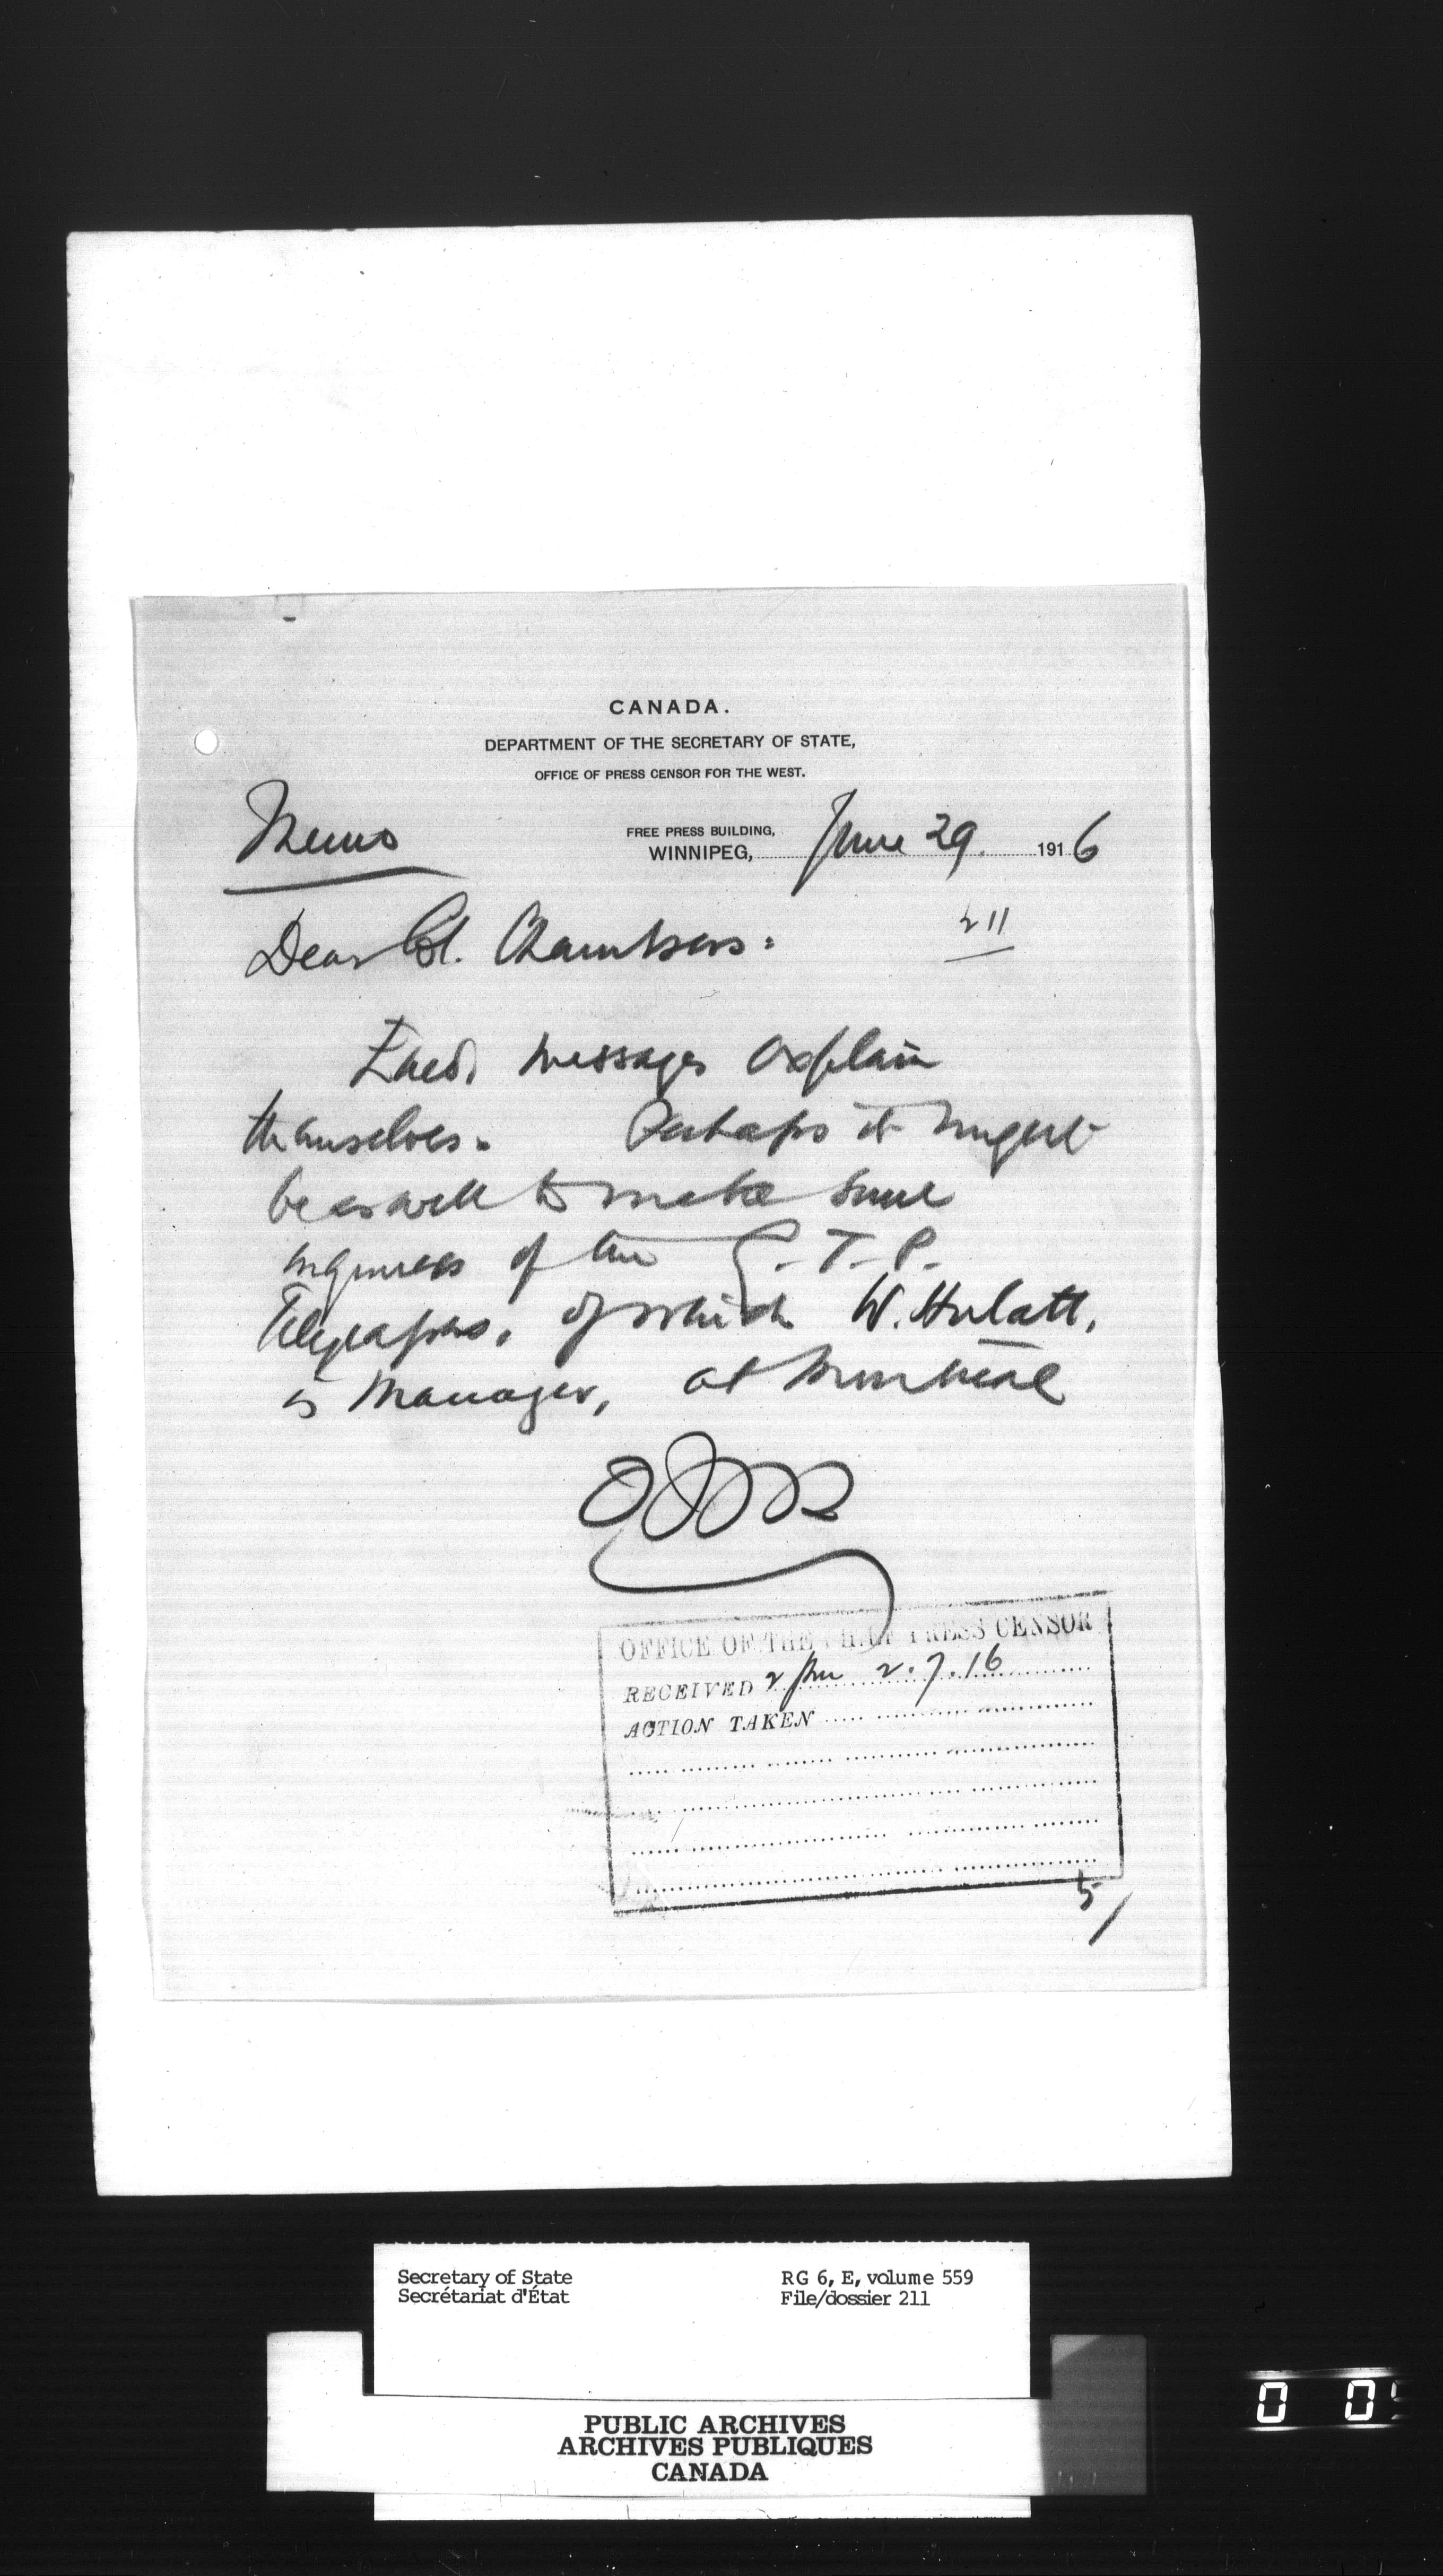 CANADA.
DEPARTMENT OF THE SECRETARY OF STATE,
OFFICE OF PRESS CENSOR FOR THE WEST.
Memo
FREE PRESS BUILDING,
WINNIPEG, June 29. 1916
211
Dear Col. Chambers:
Encd. messages explain
themselves. Perhaps it might
be as well to make some
inquiries of the G. T. P.
Telegraphs, of which W. Hulatt,
is Manager, at Montreal
OFFICE OF THE CHIEF PRESS CENSOR
RECEIVED 2 pm 2.7.16
ACTION TAKEN
5/
Secretary of State
Secrétariat d'État
RG 6, E, volume 559
File/dossier 211
PUBLIC ARCHIVES
ARCHIVES PUBLIQUES
CANADA
0 0